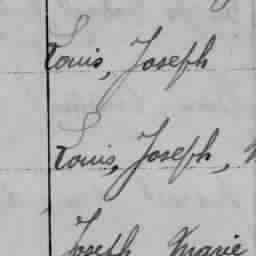 Louis, Joseph
Louis, Joseph,
Joseph Marie